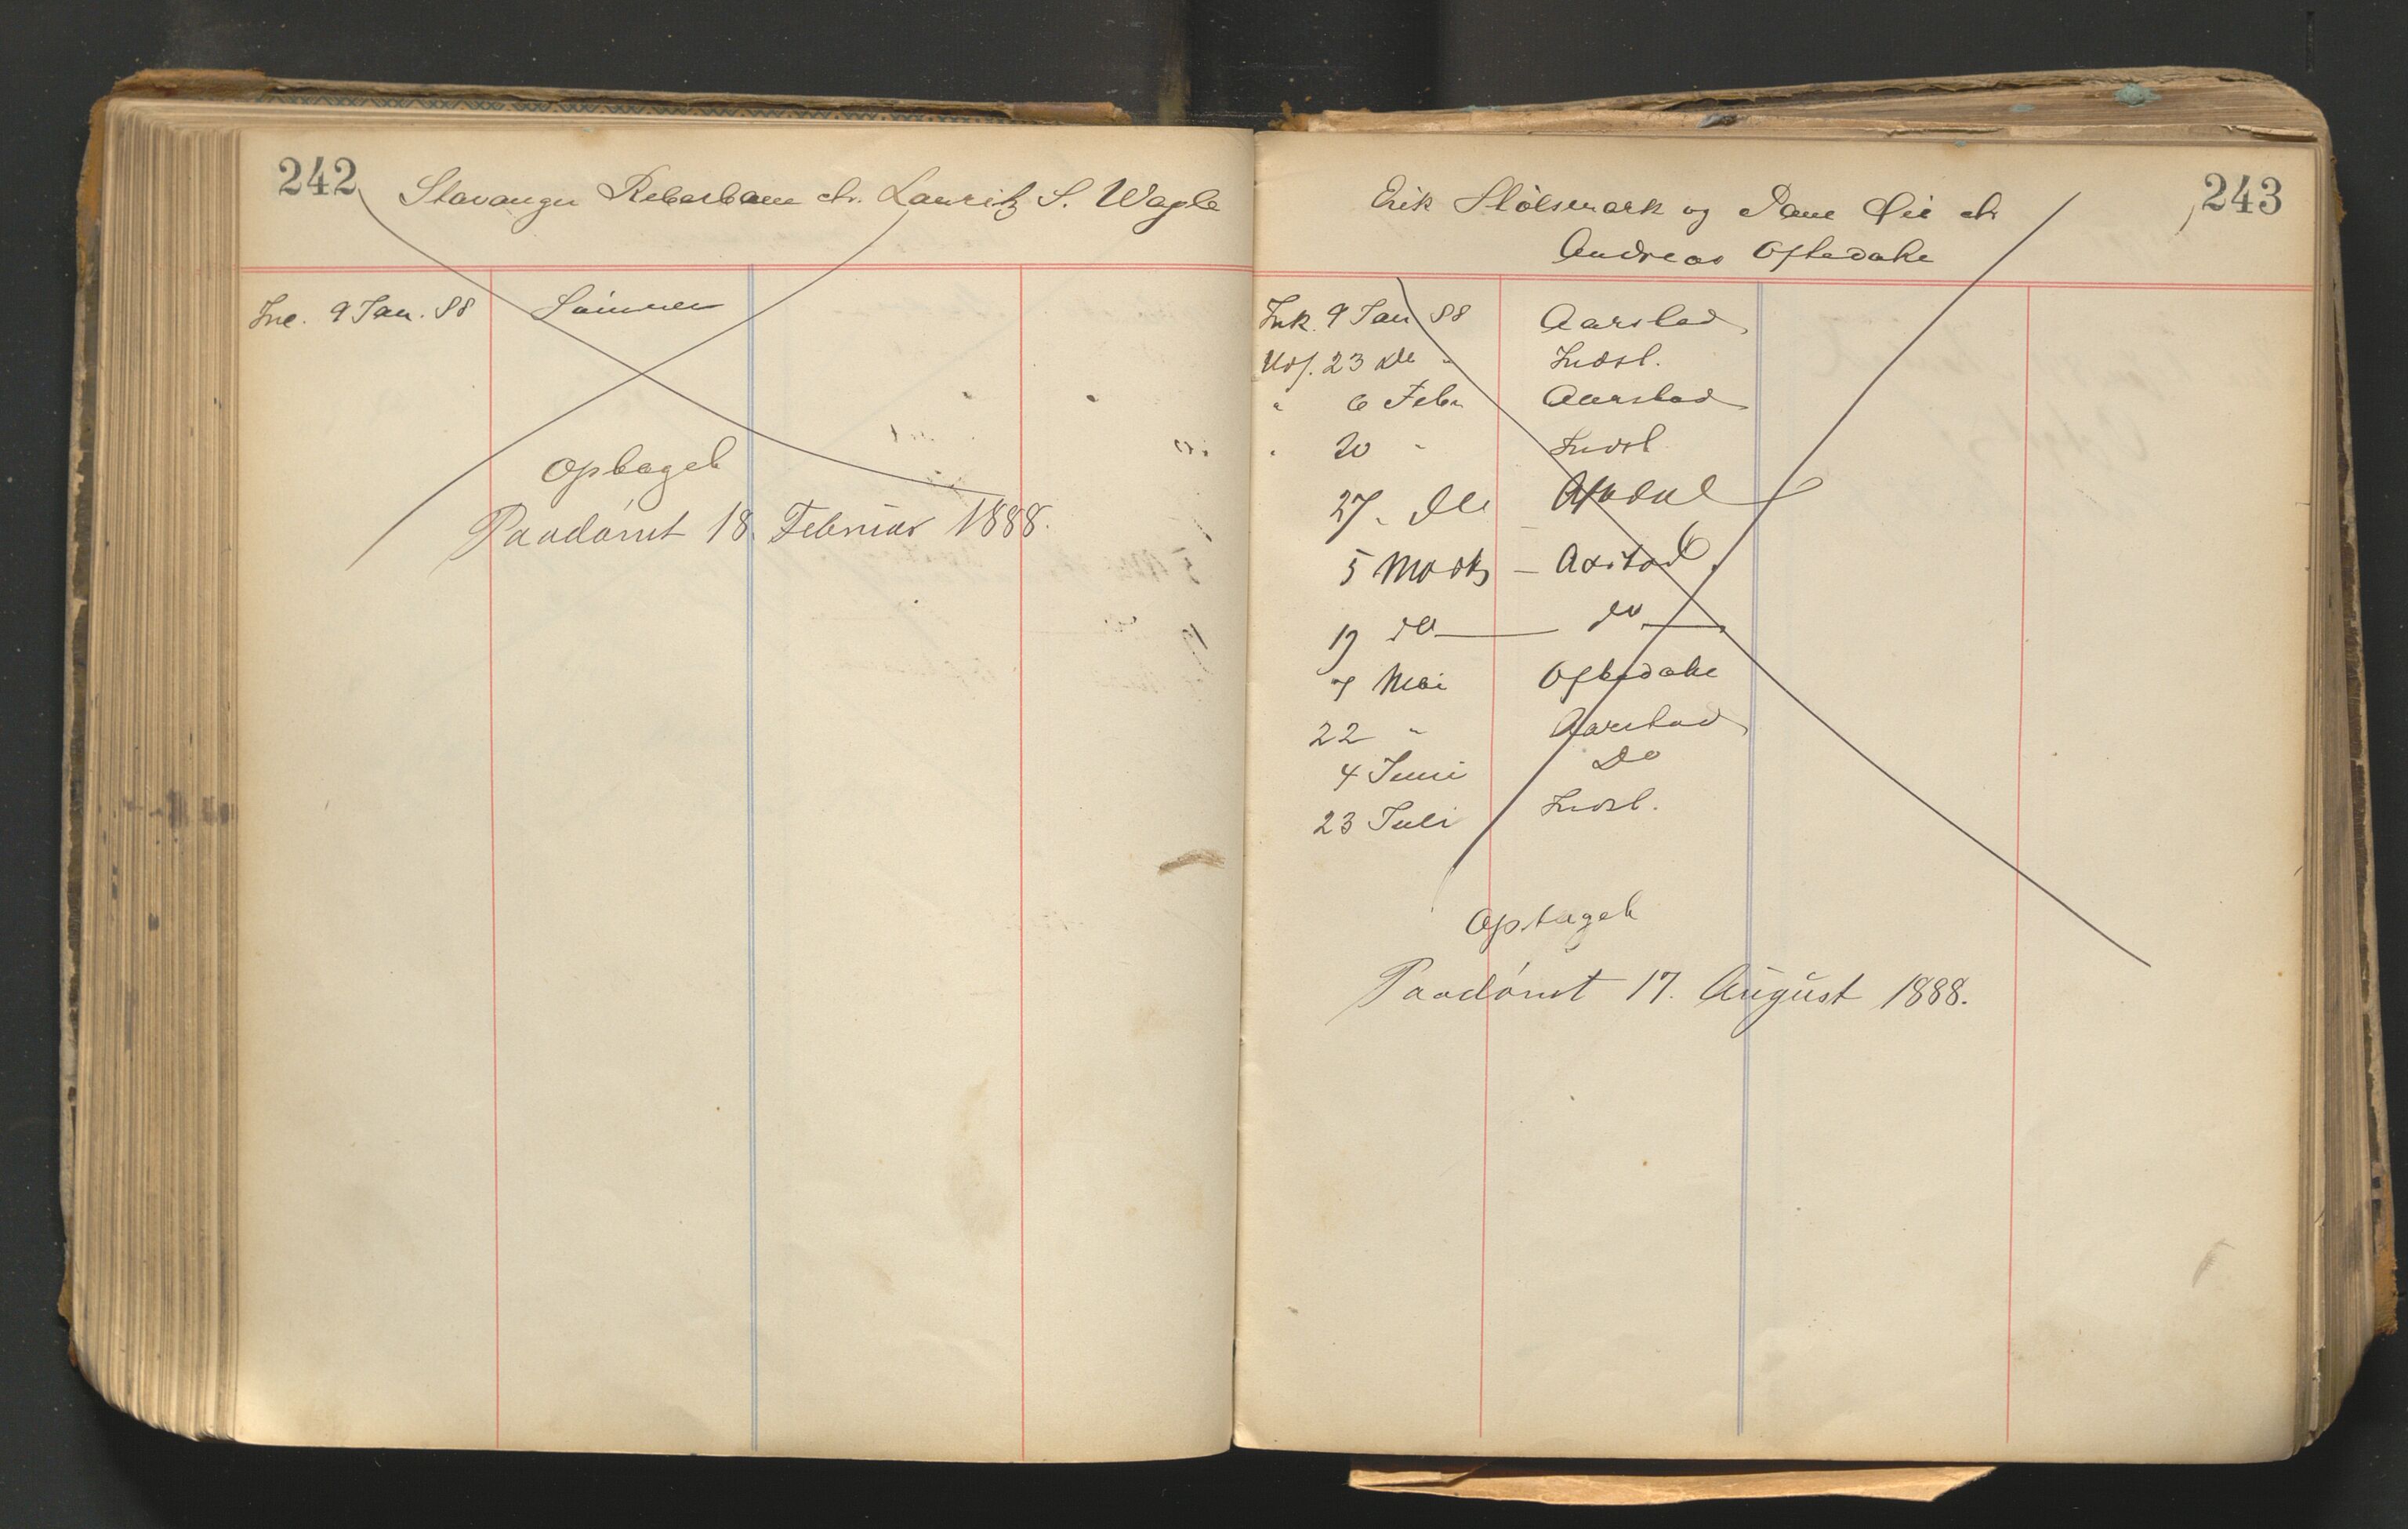 242
Stavanger Reberbane ctr. Lauritz S. Wagle
Inc. 9 Jan. 88 Sømmer
Optaget
Paadømt 18. Februar 1888.
243
Erik Stölsmark og Øie ctr
Andreas Oftedahl
Ink. 9 Jan 88 Aarstad
Uds. 23 do " Indst.
" 6 Febr Aarstad
" 20 " Indst
27. do Oftedal
5 Marts – Aarstad
19 do do
7 Mai Oftedahl
22 " Aarstad
4 Juni Do
23 Juli Indst.
Optaget
Paadømt 17. August 1888.